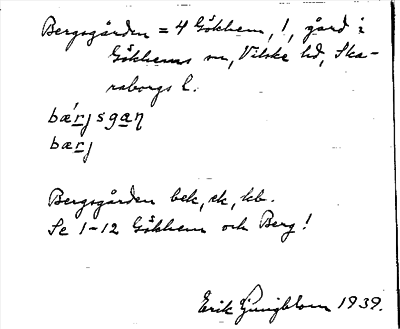 Bergsgården = 4 Gökhem, 1, gård i
Gökhems sn, Vilske hd, Ska-
raborgs l.
bærjsgaꞃ
bærj
Bergsgården bek, ek, kb.
Se 1-12 Gökhem och Berg!
Erik Ljungblom 1939.